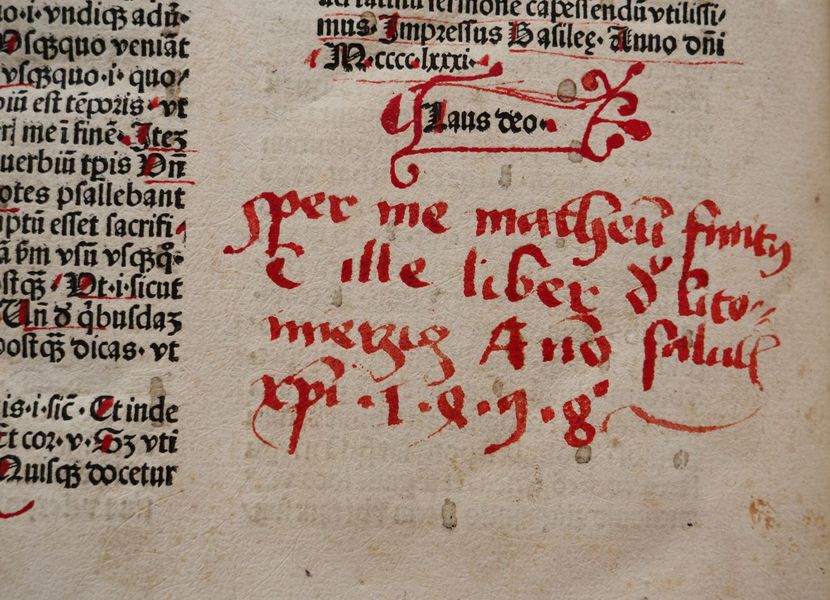 ·i·vndiqꝫ adū·
Usqꝫquo veniāt
vsqꝫquo·i·quo/
biū est tēporis·vt
me ī finē·Itez
uerbiū tp̄is Un̄
otes psallebant
ptū esset sacrifi
vsū vsqꝫq̊·
ostqꝫ Ut·i·sicut
Un̄ đ qͥbusdaz
postqꝫ dicas·vt
is·i·sic̄·Et inde
Et cor·v·Sz vti
Quisqꝫ docetur
latinū sermone capessendū vtilissi/
mus·Impressus Basileę·Anno dn̄i
M·cccc·lxxxi·
Laus deo·
per me matheū finitꝰ
ē ille liber đ lito⸗
merzicz An̄o salutꝭ
xp̄i·1·ꝝ·9·8·